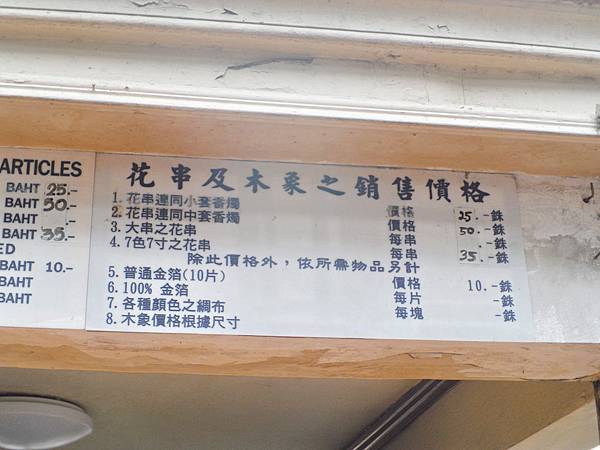 ARTICLES
BAHT 25.-
BAHT 50.-
BAHT .-
BAHT 35.-
ED
BAHT 10.-
BAHT
BAHT
花串及木象之銷售價格
1. 花串連同小套香燭 價格 25.-銖
2. 花串連同中套香燭 價格 50.-銖
3. 大串之花串 每串 .-銖
4. 7色7寸之花串 每串 35.-銖
除此價格外，依所需物品另計
5. 普通金箔(10片) 價格 10.-銖
6. 100% 金箔 每片 -銖
7. 各種顏色之綢布 每塊 -銖
8. 木象價格根據尺寸